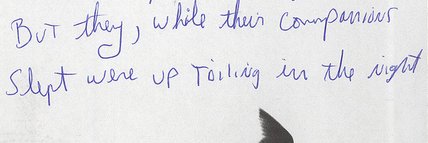 But they, while their companions
Slept were up Toiling in the night